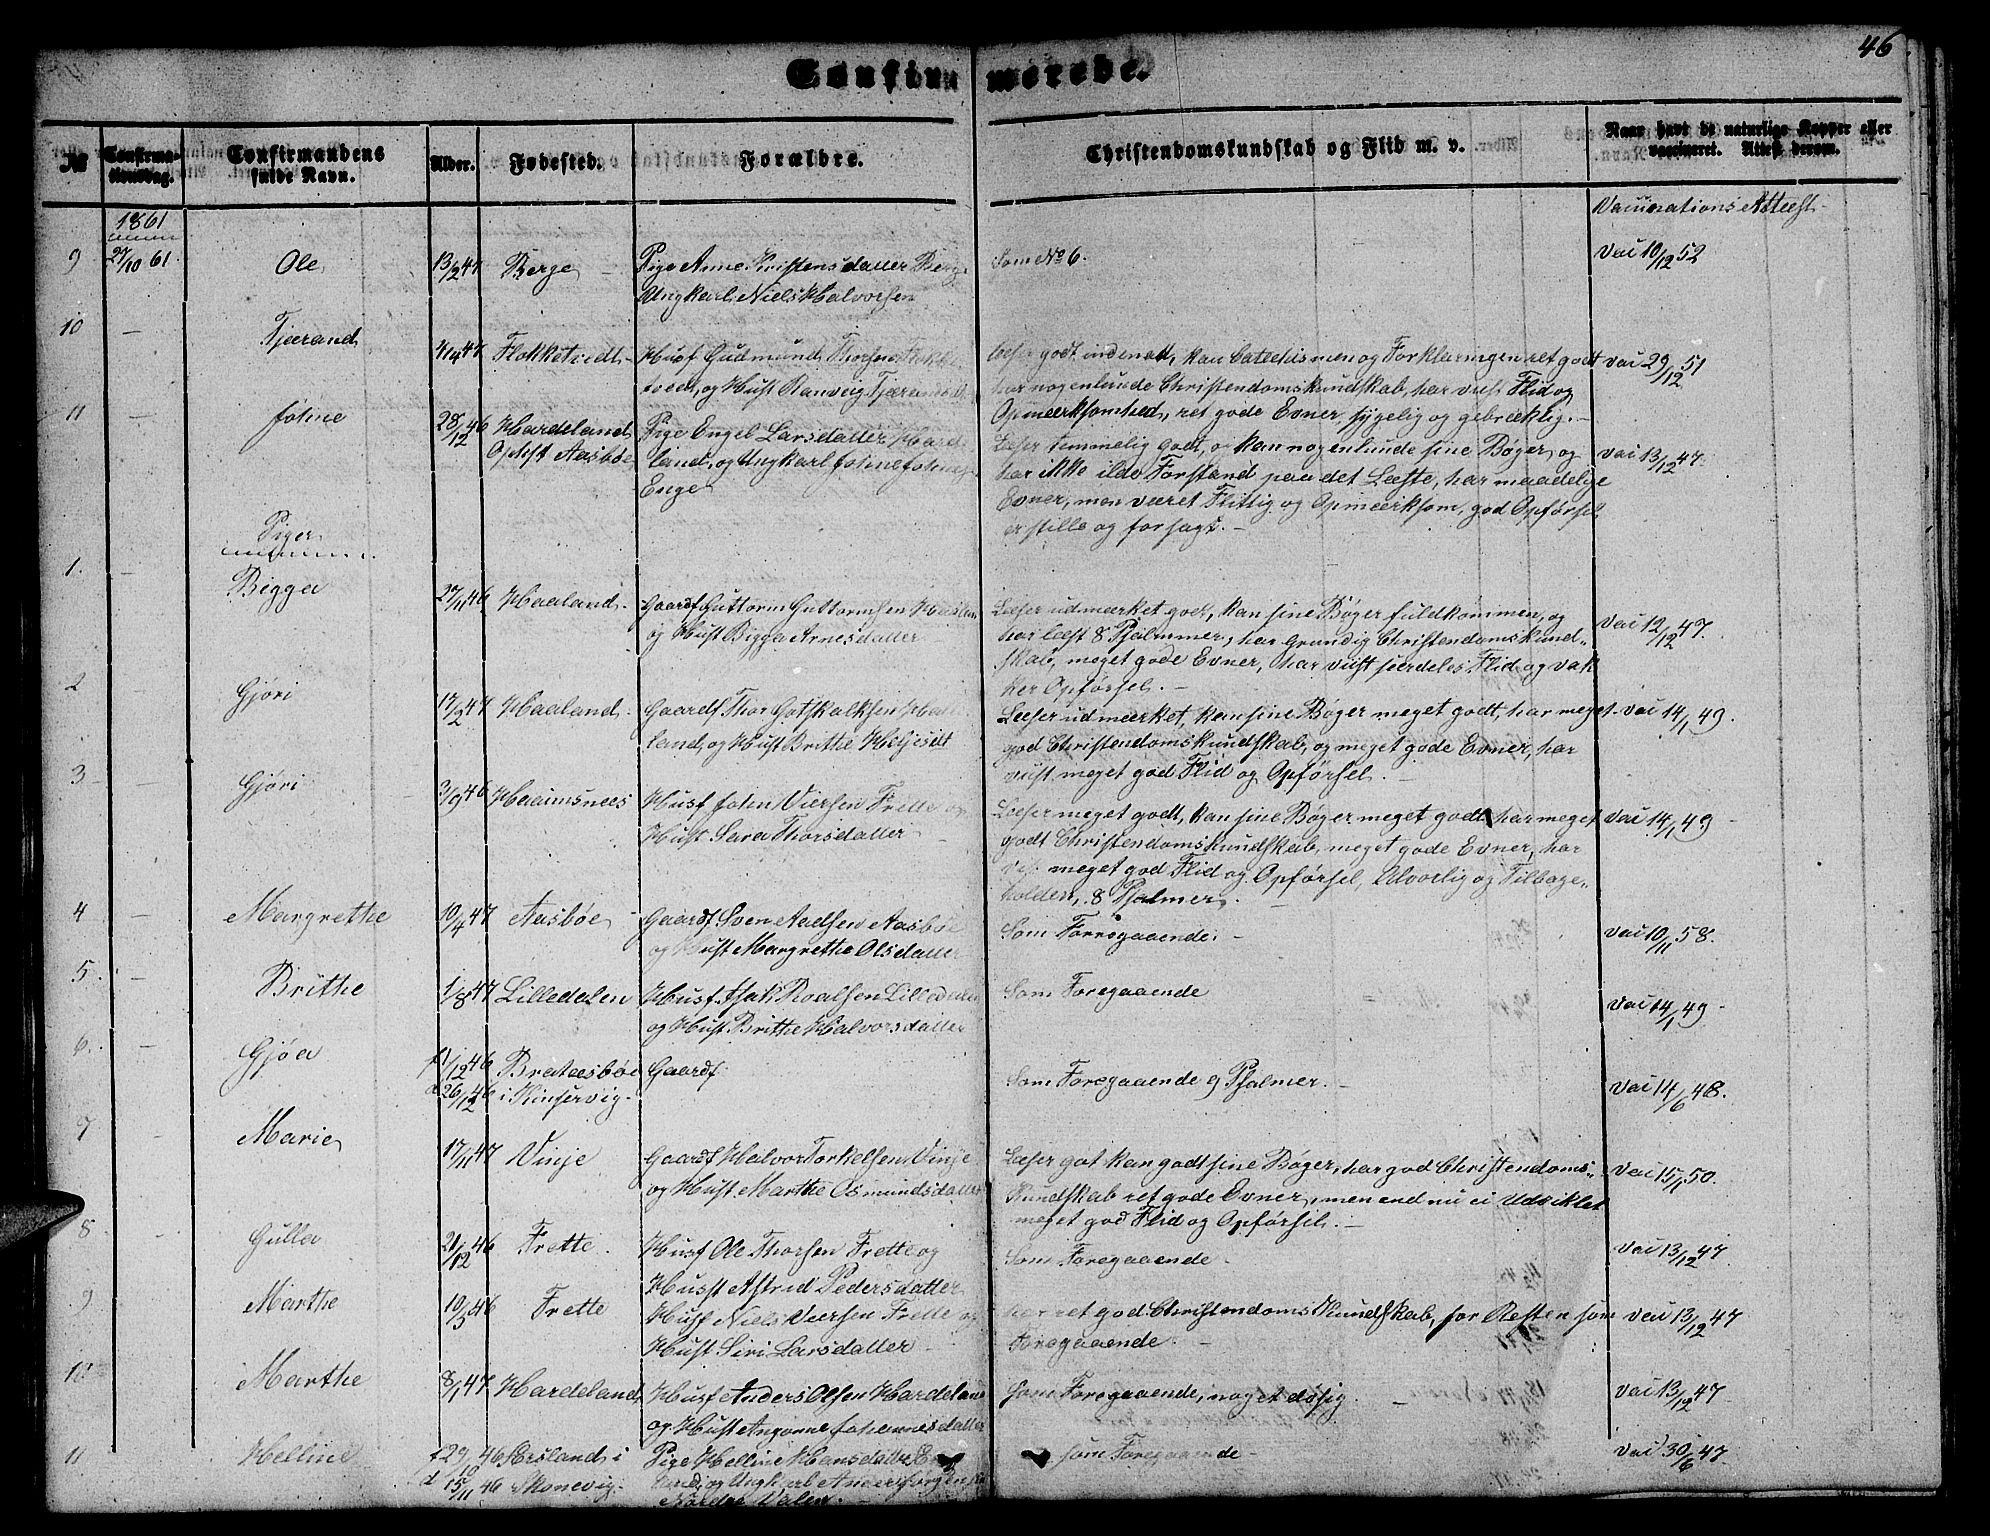 46.
Confirmerede.
№
Confirma-
tionsdag.
Confirmandens
fulde Navn.
Alder.
Fødested.
Forældre.
Christendomskundskab og Flid m. v.
Naar havt de naturlige Kopper eller
vaccineret. Attest derom.
1861
Vaccinations Attest
9 27/10 61. Ole 13/2 47 Berge Pige Anne Kristensdatter Berge Som No 6. Vac 10/12 52
Ungkarl Niels Halvorsen
10 – Tjærand 4/4 47 Flokketvedt Husf Gudmund Thorsen Læser godt indenad, kan Catechismen og Forklaringen ret godt Vac 29/12 51
og Hust Ranveig Tjærandsd har nogenlunde Christendomskundskab, har viist Flid og
Opmærksomhed, ret gode Evner, sygelig og gebræklig.
11 – Johne 28/12 46 Hardeland Pige Engel Larsdatter Harde Læser temmelig godt, kan nogenlunde sine Bøger, og Vac 13/12 47.
Ophst Aasbøe land, og Ungkarl Johne Johnes har ikke ilde Forstand paa det Læste, har maadelige
Enge Evner, men været Flittig og Opmærksom, god Opførsel,
er stille og forsagt. –
Piger
1. – Bigga 27/11 46 Haaland. Gaardf Guttorm Guttormsen Haaland Læser udmærket godt, kan sine Bøger fuldkommen, og Vac 12/12 47.
og Hust Bigga Arnesdatter har læst 8 Psalmer, har Grundig Christendomskund-
skab, meget gode Evner, har viist særdeles Flid og vak
ker Opførsel. –
2 – Gjøri 17/2 47 Haaland Gaardf Thor Gotskalksen Haa Læser udmærket, kan sine Bøger meget godt, har meget Vac 14/1 49.
land, og Hust Brithe Heljesdt god Christendomskundskab, og meget gode Evner, har
viist meget god Flid og Opførsel. –
3 – Gjøri 3/9 46 Haaimsnæs Husf John Viersen Frette og Læser meget godt, kan sine Bøger meget godt, har meget Vac 14/1 49
Hust Sara Thorsdatter godt Christendomskundskab, meget gode Evner, har
meget god Flid og Opførsel, Alvorlig og Tilbage-
holden, 8 Psalmer.
4 – Margrethe 10/4 47 Aasbøe Gaardf Sven Aadsen Aasbøe Som Forregaaende. – Vac 10/11 58.
og Hust Margrethe Olsdatter
5. – Brithe 1/8 47 Lilledalen Husf. Isak Roalsen Lilledalen Som Foregaaende Vac 14/1 49
og Hust Brithe Halvorsdatter
6. – Gjøa f 1/12 46 Bratæsbøe Gaardf Som Foregaaende 9 Psalmer. Vac 14/6 48.
d 26/12 46 i Kinservig.
7 – Marie 17/11 47 Vinje Gaardf Halvor Torkelsen Vinje Læser got kan godt sine Bøger, har god Christendoms- Vac 15/1 50.
og Hust Marthe Osmundsdatter Kundskab ret gode Evner, men end nu ei Udviklet
meget god Flid og Opførsel. –
8 – Gulla 21/12 46 Frette. Husf Ole Thorsen Frette og Som Foregaaende. Vac 13/12 47.
Husst Astrid Pedersdatter
9 – Marthe 10/5 46 Frette Husf Niels Viersen Frette og har ret god Christendoms Kundskab, for Resten som Vac 13/12 47
Hust Siri Larsdatter – Foregaaende –
10 – Marthe 8/1 47 Hardeland Husf Anders Olsen Hardeland Som Foregaaende, noget døsig. – Vac 13/12 47
og Hust Johannesdatter
11 Helline f 29/10 46 i Pige Helline Hansdatter som Foregaaende Vac 30/6 47.
d 15/11 46 Skonevig. og Ungkarl